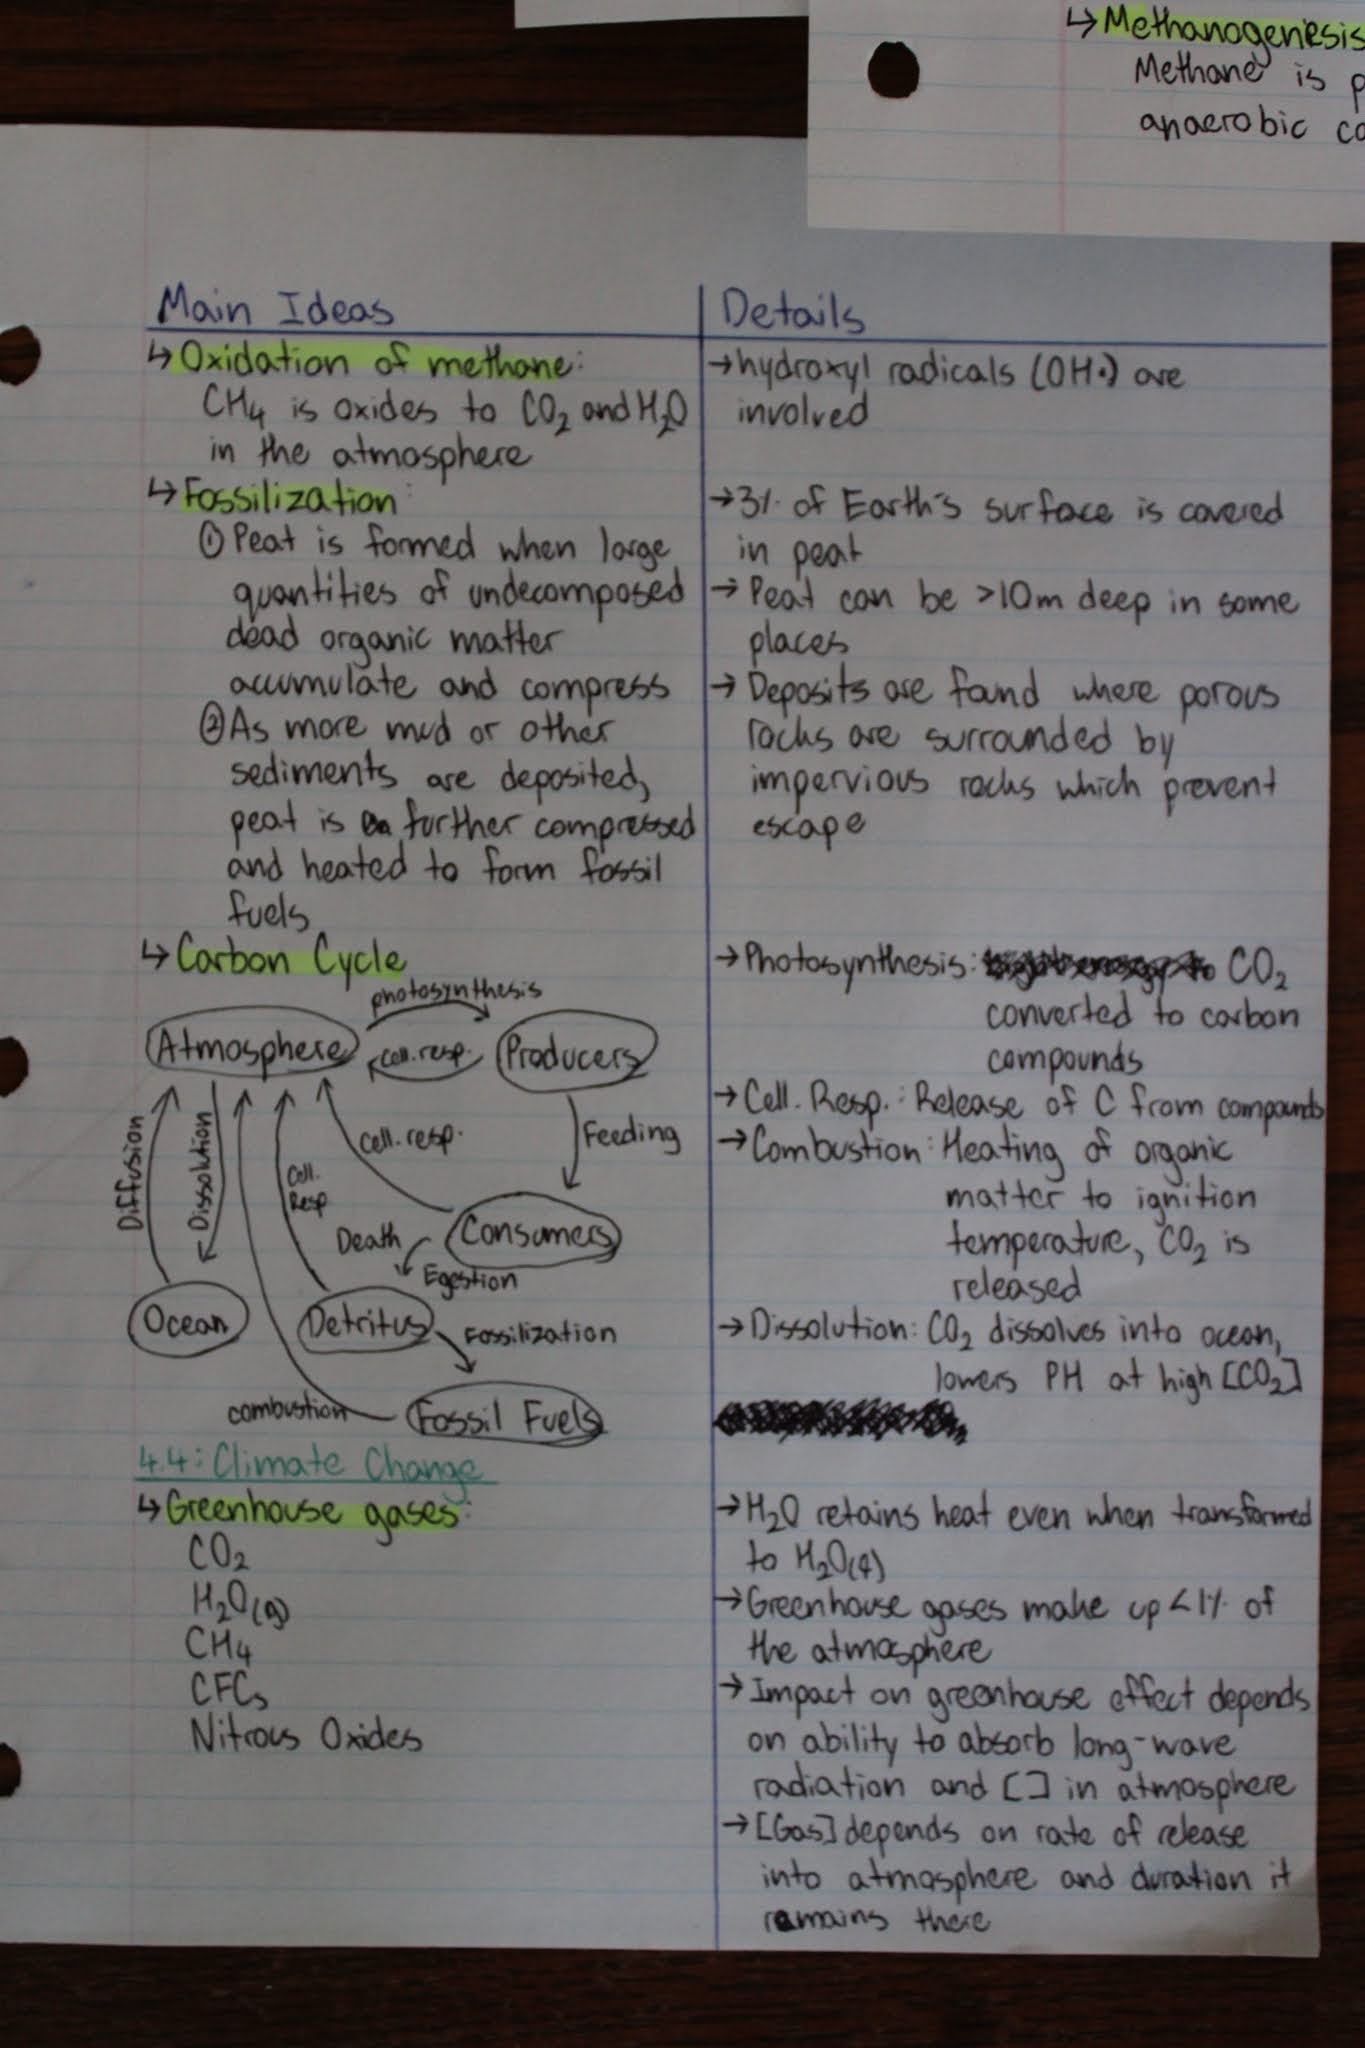 ↳ Methanogenesis
Methane is
anaerobic
Main Ideas
↳ Oxidation of methane:
CH₄ is oxides to CO₂ and H₂O
in the atmosphere
↳ Fossilization:
① Peat is formed when large
quantities of undecomposed
dead organic matter
accumulate and compress
② As more mud or other
sediments are deposited,
peat is further compressed
and heated to form fossil
fuels
↳ Carbon Cycle
photosynthesis
Atmosphere
cell. resp.
Producers
Diffusion
Dissolution
Cell.
Resp
cell. resp.
Feeding
Consumers
Death
Egestion
Ocean
Detritus
Fossilization
combustion
Fossil Fuels
4.4: Climate Change
↳ Greenhouse gases:
CO₂
H₂O(g)
CH₄
CFCs
Nitrous Oxides
Details
→ hydroxyl radicals (OH•) are
involved
→ 3% of Earth's surface is covered
in peat
→ Peat can be >10m deep in some
places
→ Deposits are found where porous
rocks are surrounded by
impervious rocks which prevent
escape
→ Photosynthesis: CO₂
converted to carbon
compounds
→ Cell. Resp.: Release of C from compounds
→ Combustion: Heating of organic
matter to ignition
temperature, CO₂ is
released
→ Dissolution: CO₂ dissolves into ocean,
lowers PH at high [CO₂]
→ H₂O retains heat even when transformed
to H₂O(l)
→ Greenhouse gases make up <1% of
the atmosphere
→ Impact on greenhouse effect depends
on ability to absorb long-wave
radiation and [ ] in atmosphere
→ [Gas] depends on rate of release
into atmosphere and duration it
remains there